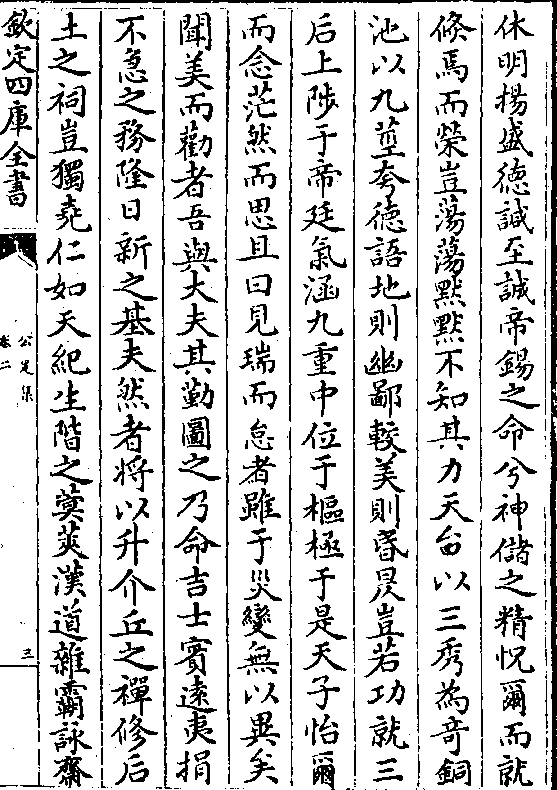 休明揚盛德諴至誠帝錫之命兮神儲之精怳爾而就
倐焉而榮豈蕩蕩㸃㸃不知其力天台以三秀為竒銅
池以九莖夸徳語地則幽鄙較美則昏昃豈若功就三
后上陟于帝廷氣涵九重中位于樞極于是天子怡爾
而念茫然而思且曰見瑞而怠者雖于災變無以異矣
聞美而勸者吾與大夫其勤圖之乃命吉士賓遠夷捐
不急之務隆日新之基夫然者將以升介丘之禪修后
土之祠豈獨堯仁如天紀生階之蓂莢漢道雜霸詠齋
欽定四庫全書
公是集
卷二
三